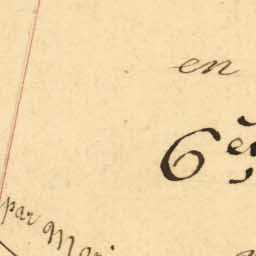 en
6è
par Mari